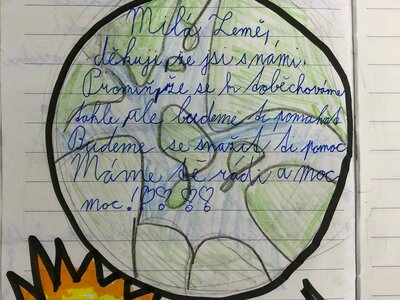 Milá Země,
děkuji že jsi s námi.
Promiň že se k tobě chováme
takhle ale budeme ti pomahat
Budeme se snažit ti pomoc
Máme tě rádi a moc
moc!